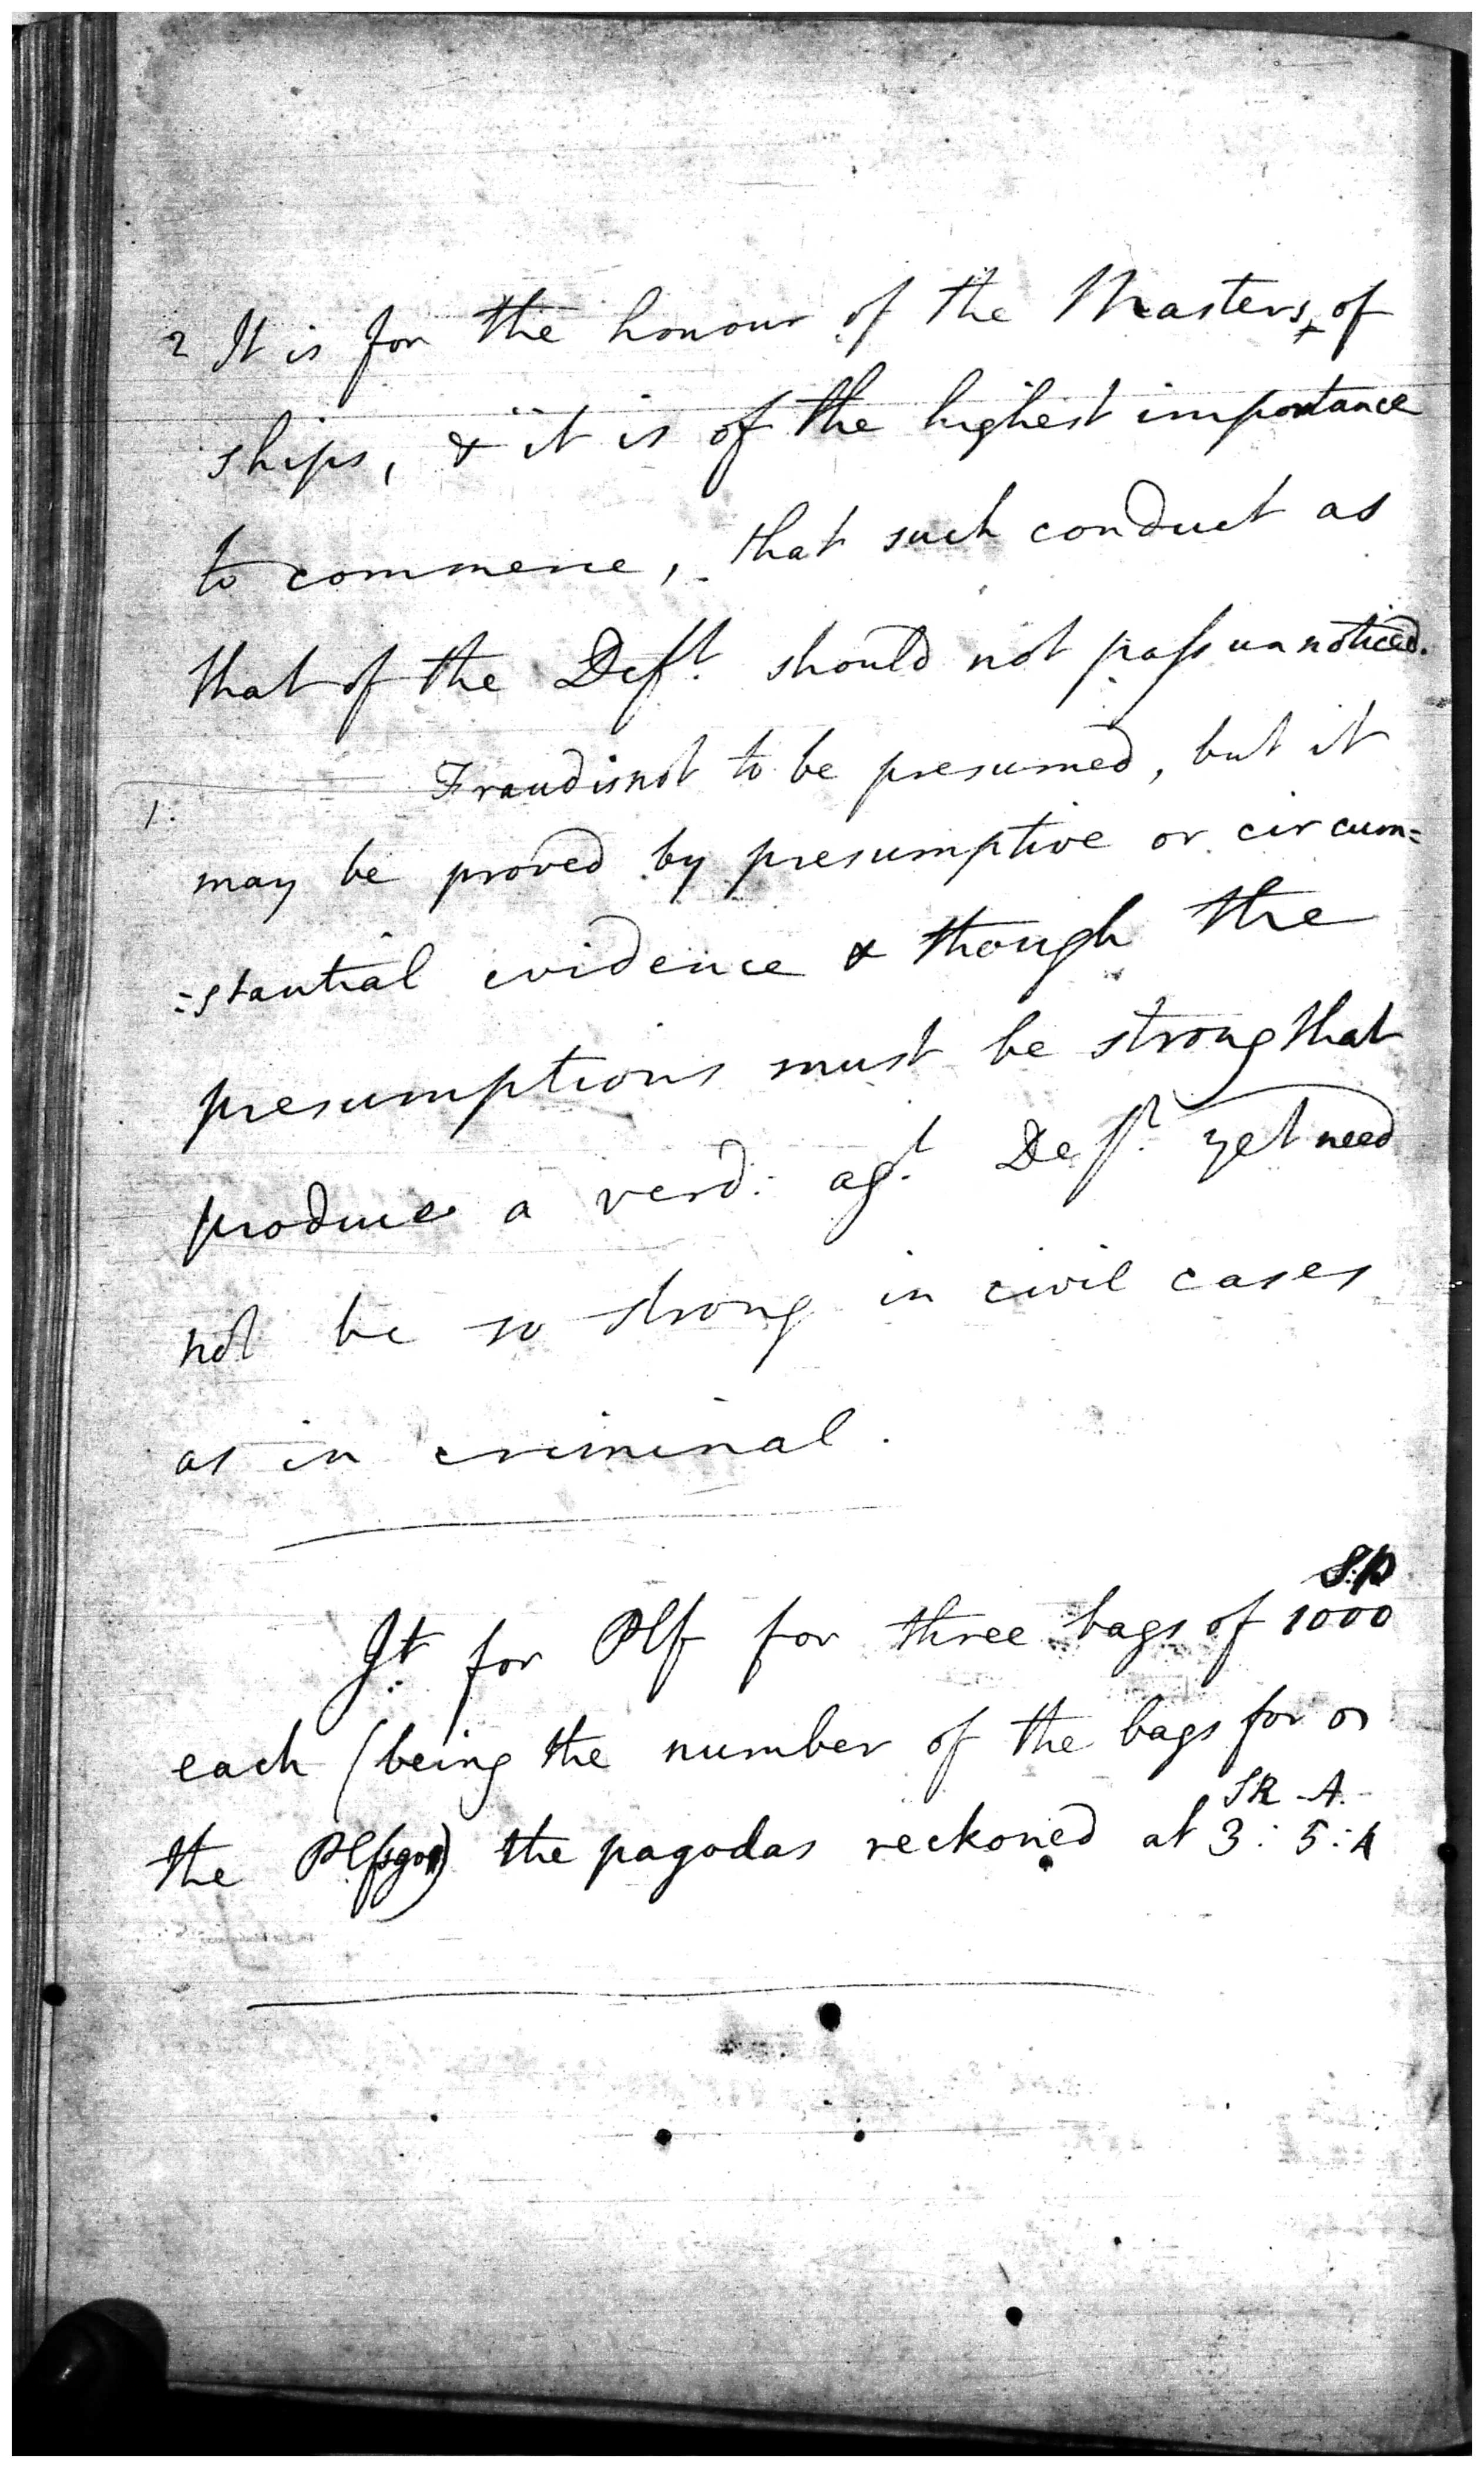 2 It is for the honour of the Masters, of
ships, & it is of the highest importance
to commerce, that such conduct as
that of the Deft. should not pass unnoticed.
1. Fraud is not to be presumed, but it
may be proved by presumptive or circum=
=stantial evidence & though the
presumptions must be strong that
produce a verd: agt. Deft. yet need
not be so strong in civil cases
as in criminal.
S.P.
Jt. for Plf for three bags of 1000
each (being the number of the bags for
SR - A.
the the pagodas reckoned at 3 : 5 : 4